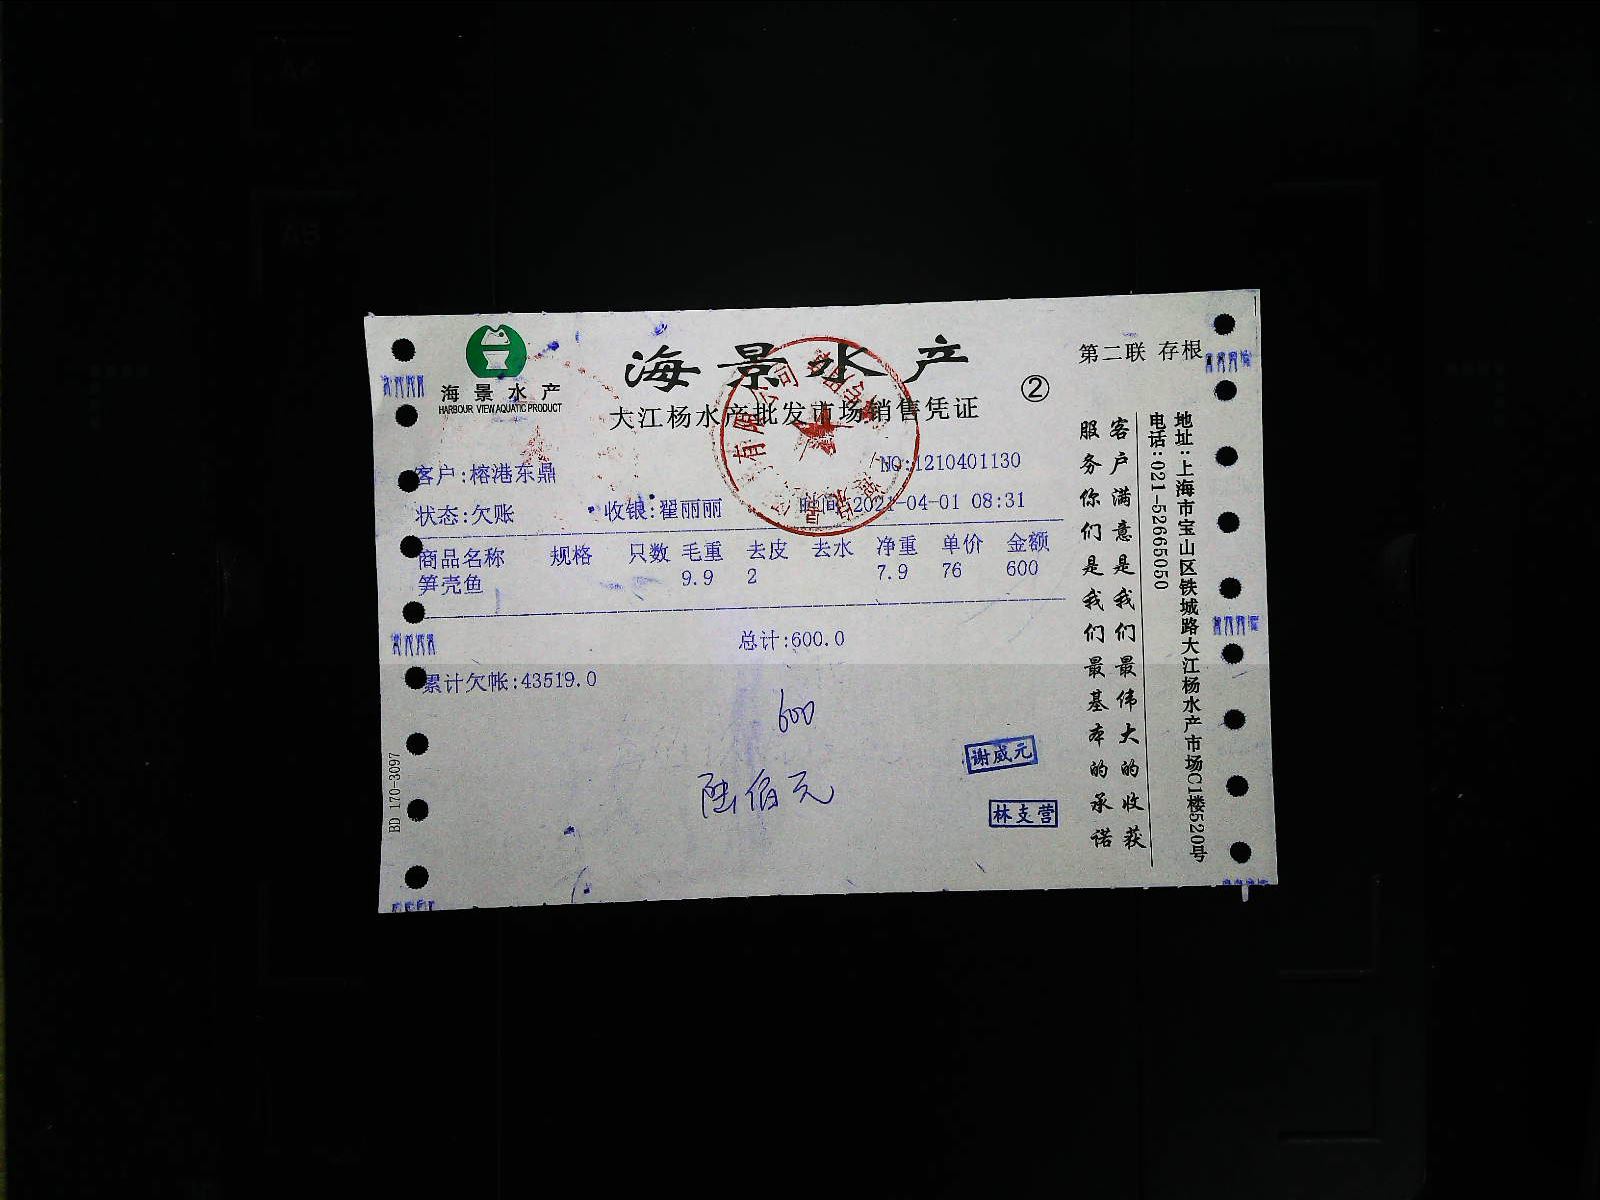 海景水产
HARBOUR VIEW AQUATIC PRODUCT
海景水产
②
第二联 存根
大江杨水产批发市场销售凭证
客户:榕港东鼎
NO:1210401130
状态:欠账 收银:翟丽丽 时间:2021-04-01 08:31
商品名称 规格 只数 毛重 去皮 去水 净重 单价 金额
笋壳鱼 9.9 2 7.9 76 600
总计:600.0
累计欠帐:43519.0
600
陆佰元
谢威元
林支营
BD 170-3097
客户满意是我们最伟大的收获
服务你们是我们最基本的承诺
地址:上海市宝山区铁城路大江杨水产市场C1楼520号
电话:021-52665050
有限公司